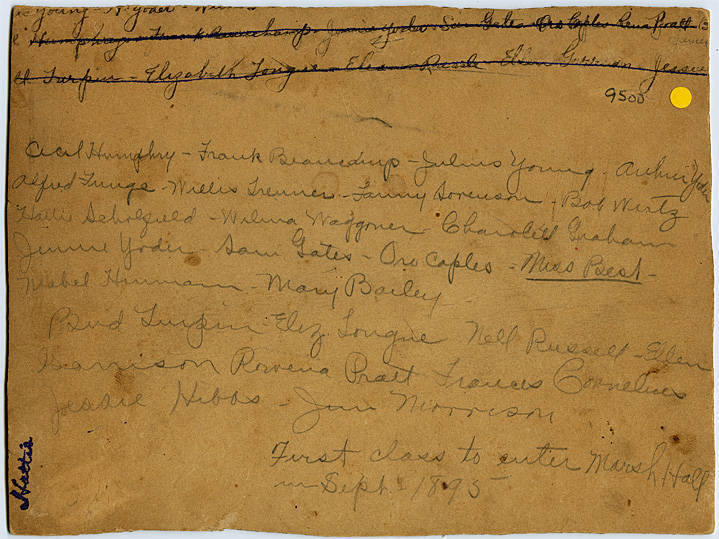 Young - A. Yoder -
Humphry - Frank Beauchamp - Jimmie Yoder - Sam Gates - Oro Caples Rena Pratt
Turpin - Elizabeth Tongue - Ellen - Jessie
9500
Cecil Humphry - Frank Beauchamp - Julius Young - Arthur Yoder
Alfred Tunge - Willis Trenner - Fanny Sorenson - Bob Wirtz
Hattie Scholfield - Wilma Waggoner - Charolett Graham
Jimmie Yoder - Sam Gates - Oro Caples - Miss Best -
Mabel Hinmann - Mary Bailey
Bud Turpin - Eliz Tongue Nell Russell - Ellen
Garrison Rowena Pratt Frances Cornelius
Jessie Hibbs - Jim Morrison
First class to enter Marsh Hall
in Sept. 1895
Hattie